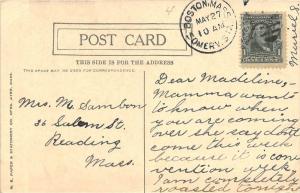 BOSTON, MASS.
MAY 27
10 AM
POST CARD
THIS SIDE IS FOR THE ADDRESS
THIS SPACE MAY BE USED FOR CORRESPONDENCE
Mrs. M. Sambon
36 Salem St.
Reading
Mass.
Dear Madeline,
Mamma wants
to know when
you are coming
over she say dont
come this week
because it is con
vention week.
I am completely
roasted today
Muriel S.